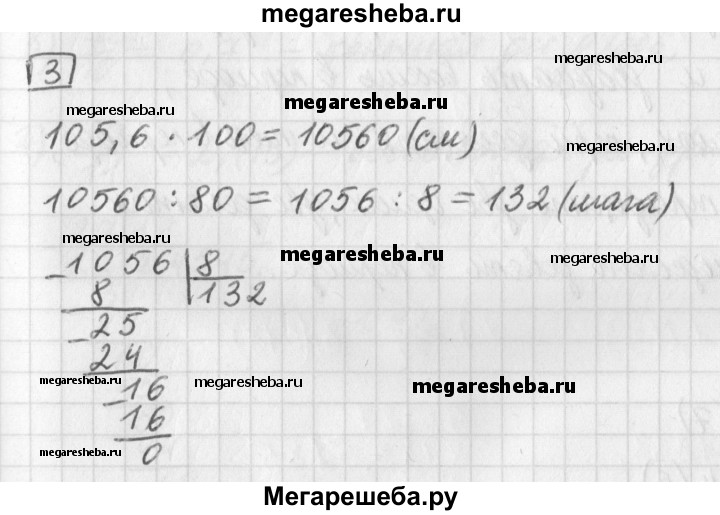 megaresheba.ru
3
megaresheba.ru megaresheba.ru
105,6 · 100 = 10560 (см) megaresheba.ru
10560 : 80 = 1056 : 8 = 132 (шага)
megaresheba.ru megaresheba.ru megaresheba.ru
- 1056 | 8
8 132
- 25
24
megaresheba.ru megaresheba.ru megaresheba.ru
- 16
16
megaresheba.ru 0
Мегарешеба.ру